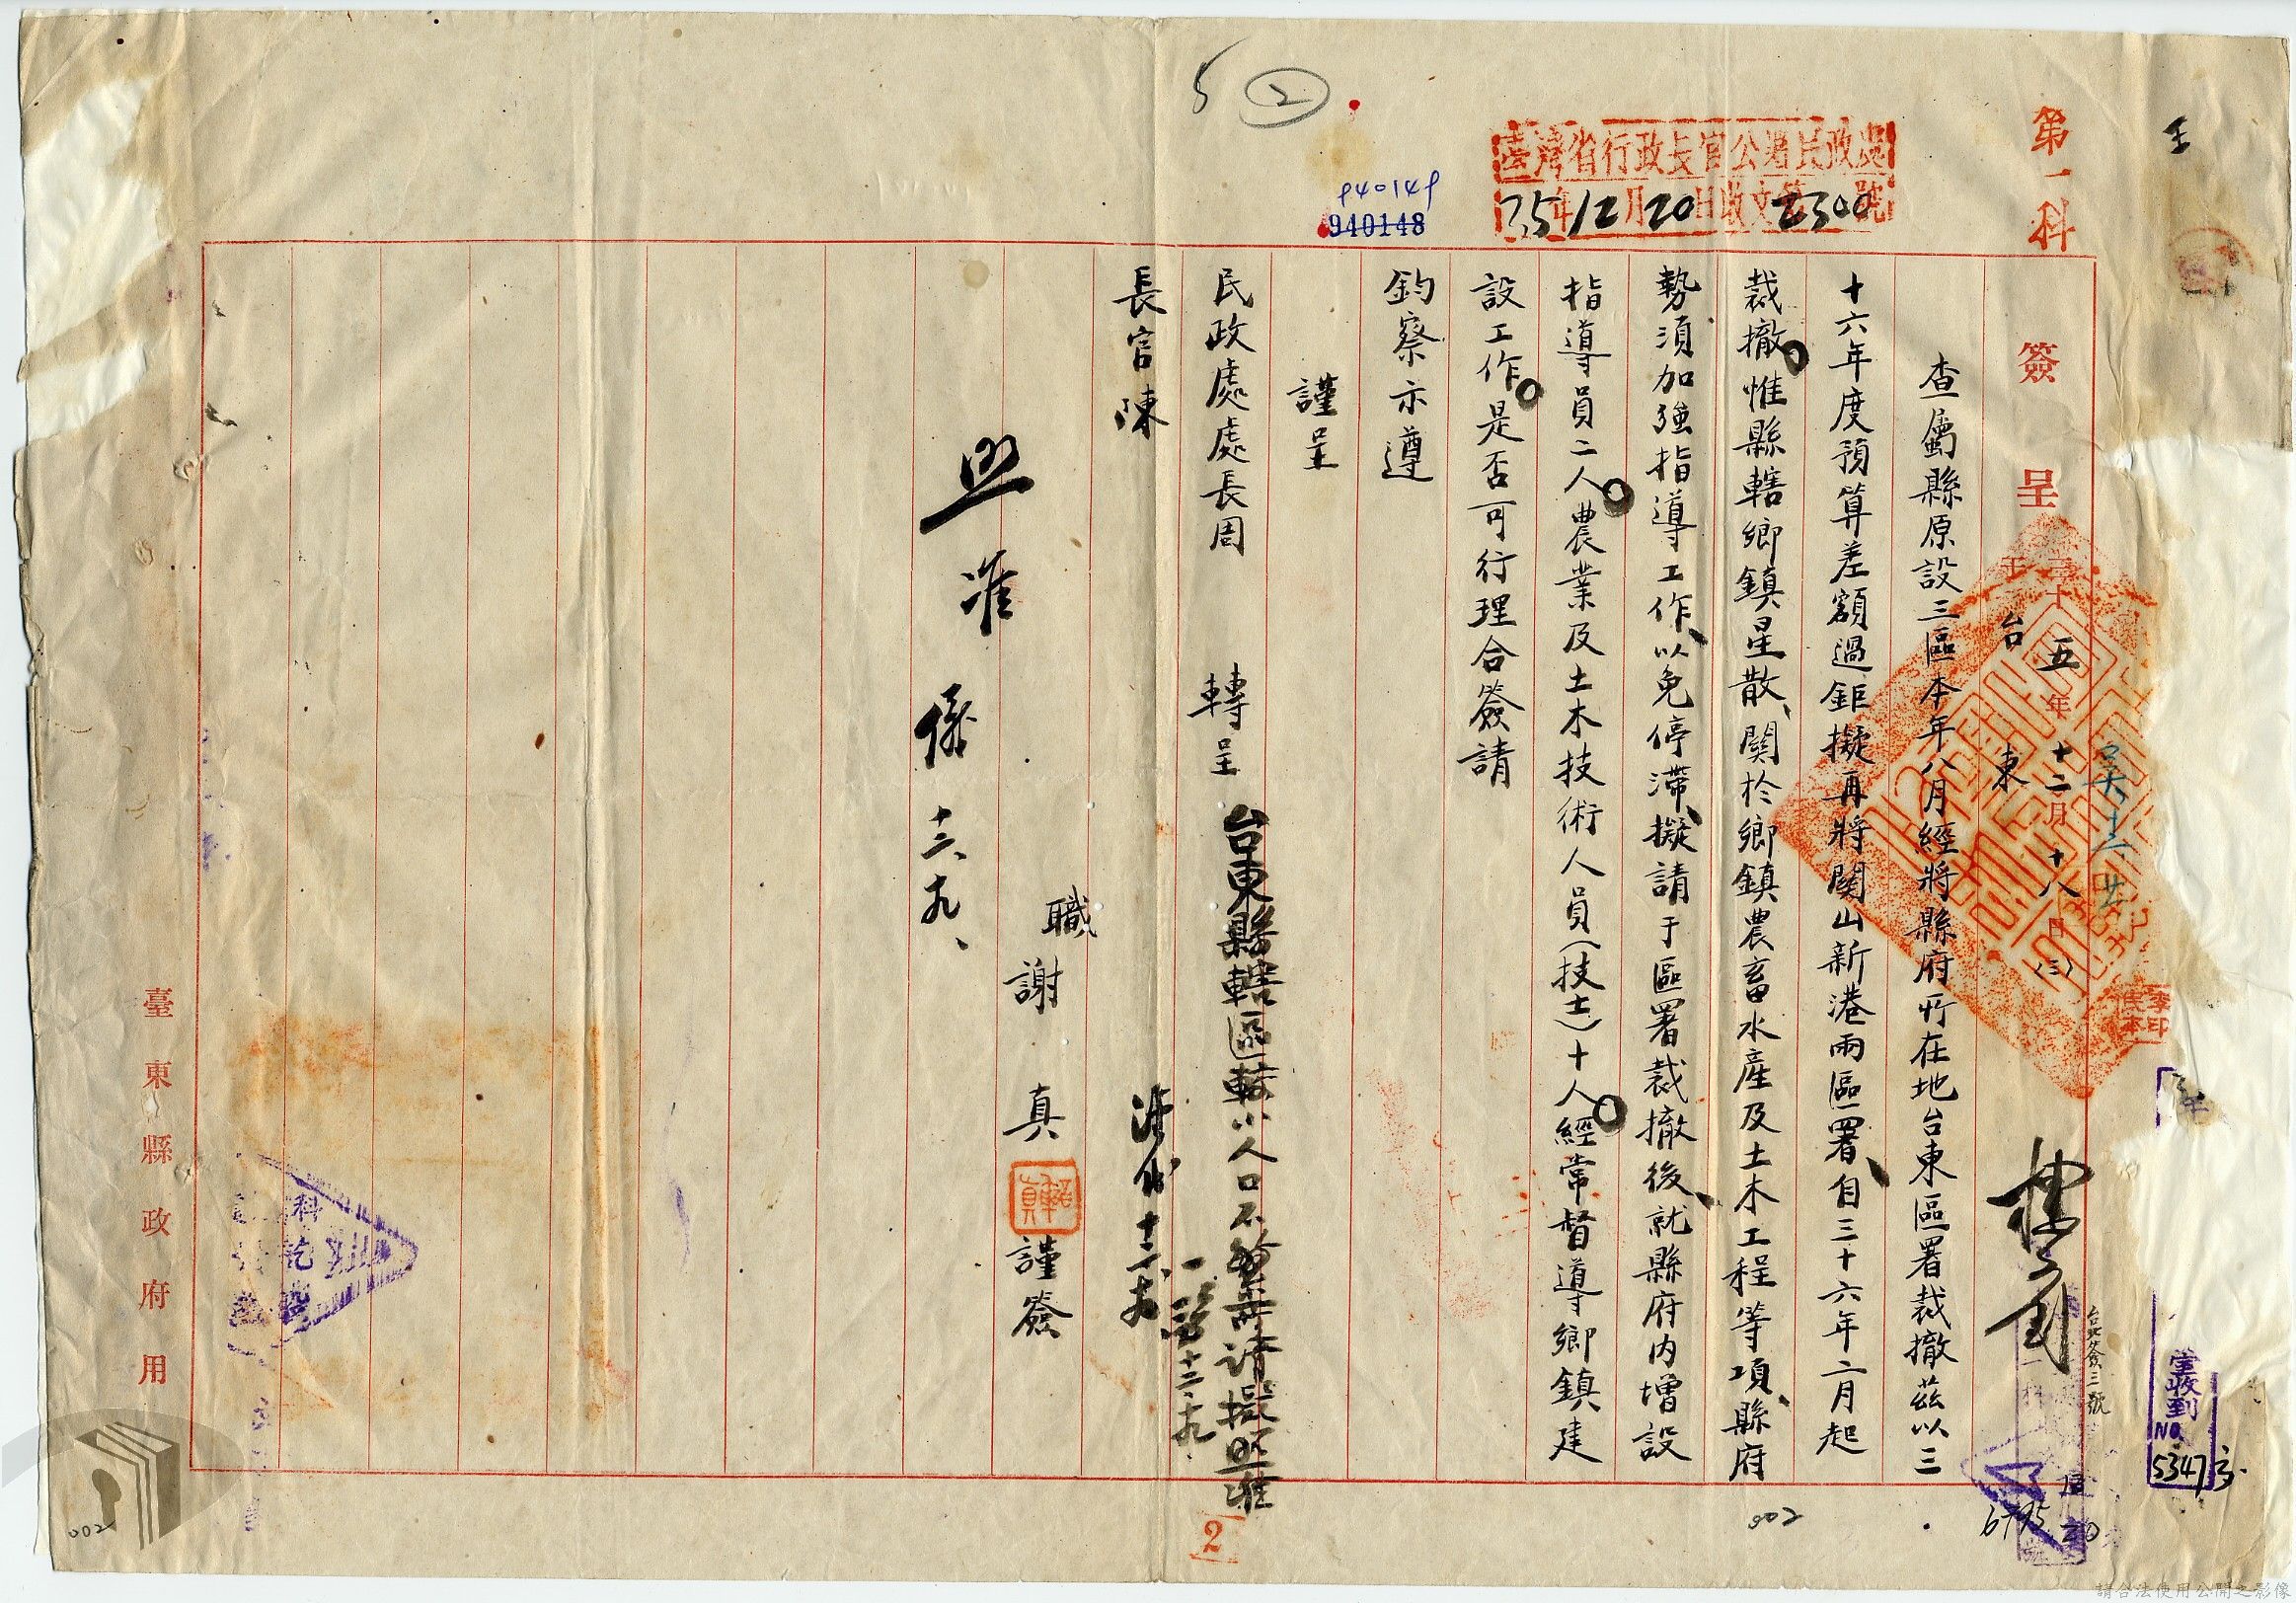 5 ②
第一科
王
臺灣省行政長官公署民政處
35年12月20日收文第2300號
940149
940148
簽呈
三十五年十二月十八日（三）
于台東
台北簽三號
查屬縣原設三區本年八月經將縣府所在地台東區署裁撤茲以三
十六年度預算差額過鉅擬再將關山新港兩區署、自三十六年一月起
裁撤。惟縣轄鄉鎮星散、關於鄉鎮農畜水產及土木工程等項、縣府
勢須加強指導工作、以免停滯、擬請于區署裁撤後、就縣府內增設
指導員二人。農業及土木技術人員(技士)十人。經常督導鄉鎮建
設工作。是否可行理合簽請
鈞察示遵
謹呈
民政處處長周 轉呈
長官陳
職 謝真 謹簽
台東縣轄區較小人口不繁所請擬照准
照准
儀 十二、十九、
臺東縣政府用
室收到
NO.
5347
6795
002
2
002
請合法使用公開之影像